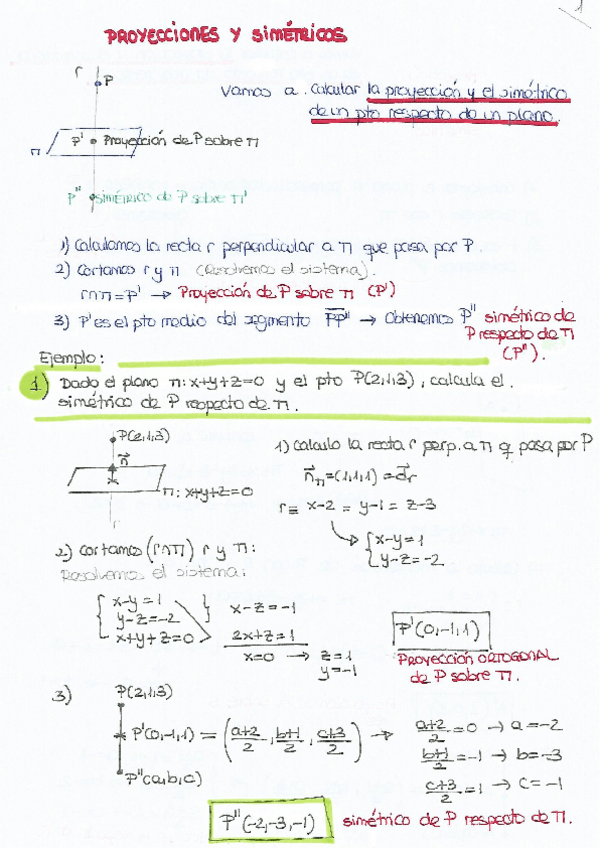 1
PROYECCIONES Y SIMÉTRICOS
r
P
Vamos a calcular la proyección y el simétrico
de un pto respecto de un plano.
π P' Proyección de P sobre π
P'' simétrico de P sobre π'
1) Calculamos la recta r perpendicular a π que pasa por P.
2) Cortamos r y π (Resolvemos el sistema).
r∩π=P' → Proyección de P sobre π (P')
3) P' es el pto medio del segmento PP'' → Obtenemos P'' simétrico de
P respecto de π
(P'').
Ejemplo:
1) Dado el plano π: x+y+z=0 y el pto P(2,1,3), calcula el
simétrico de P respecto de π.
P(2,1,3)
n
π: x+y+z=0
r
1) Calculo la recta r perp. a π q pasa por P
n_π=(1,1,1)=d_r
r≡ x-2 = y-1 = z-3
x-y=1
y-z=-2
2) Cortamos (r∩π) r y π:
Resolvemos el sistema:
x-y=1
y-z=-2
x+y+z=0
x-z=-1
2x+z=1
x=0 → z=1
y=-1
P'(0,-1,1)
PROYECCIÓN ORTOGONAL
de P sobre π.
3) P(2,1,3)
P'(0,-1,1) = (a+2/2, b+1/2, c+3/2) →
P''(a,b,c)
a+2/2 = 0 → a=-2
b+1/2 = -1 → b=-3
c+3/2 = 1 → c=-1
P''(-2,-3,-1) simétrico de P respecto de π.